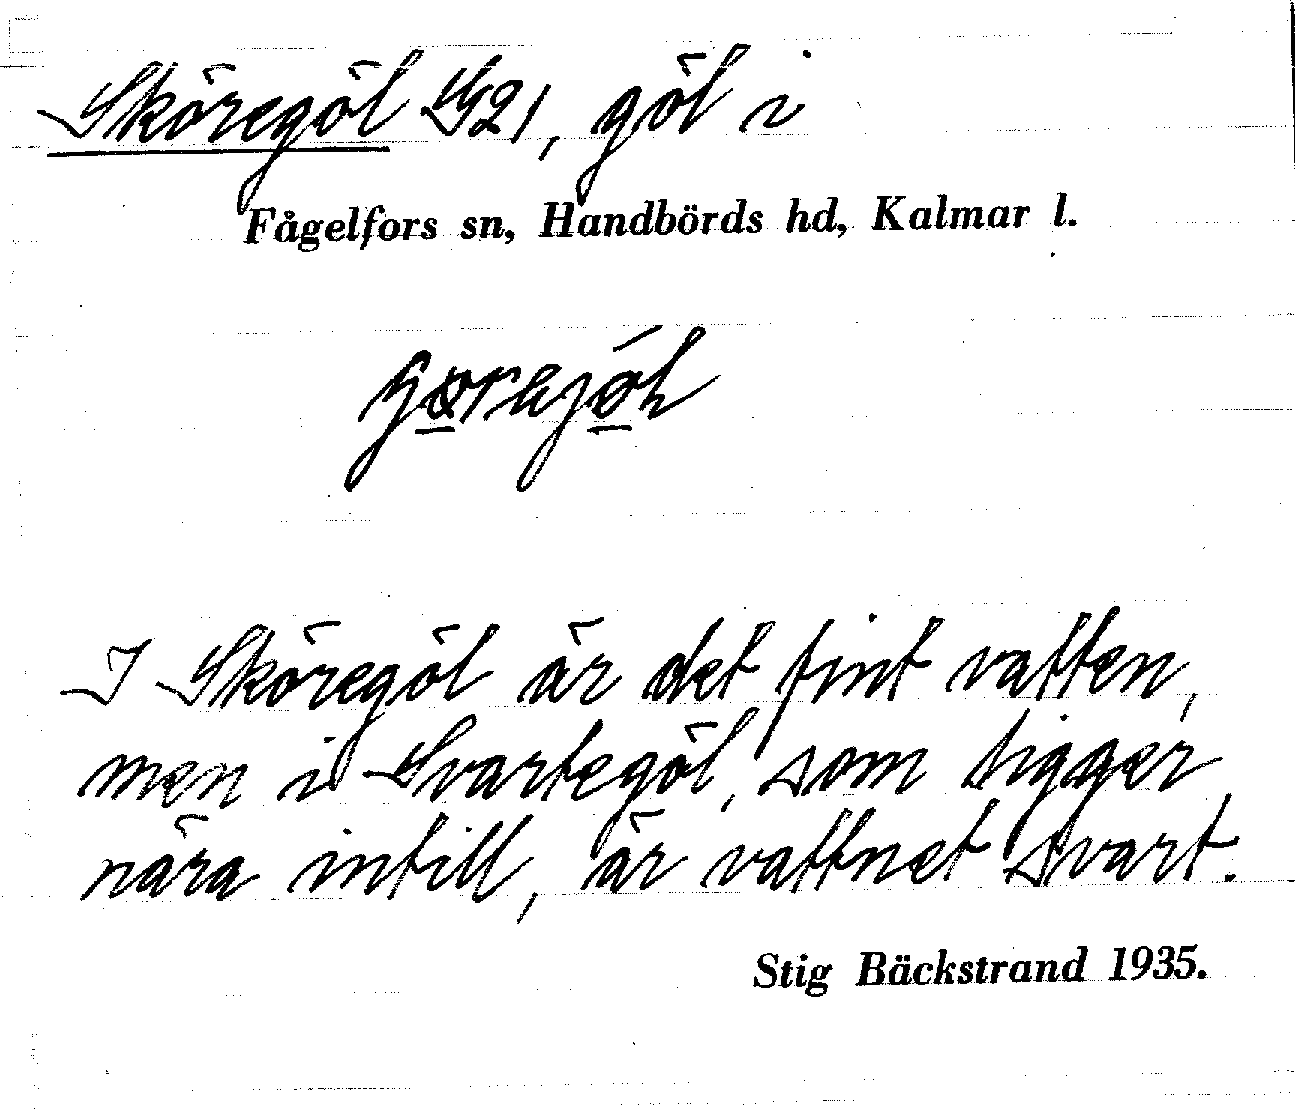 Sköregöl S21, göl i
Fågelfors sn, Handbörds hd, Kalmar l.
I Sköregöl är det fint vatten,
men i Svartegöl, som ligger
nära intill, är vattnet svart.
Stig Bäckstrand 1935.